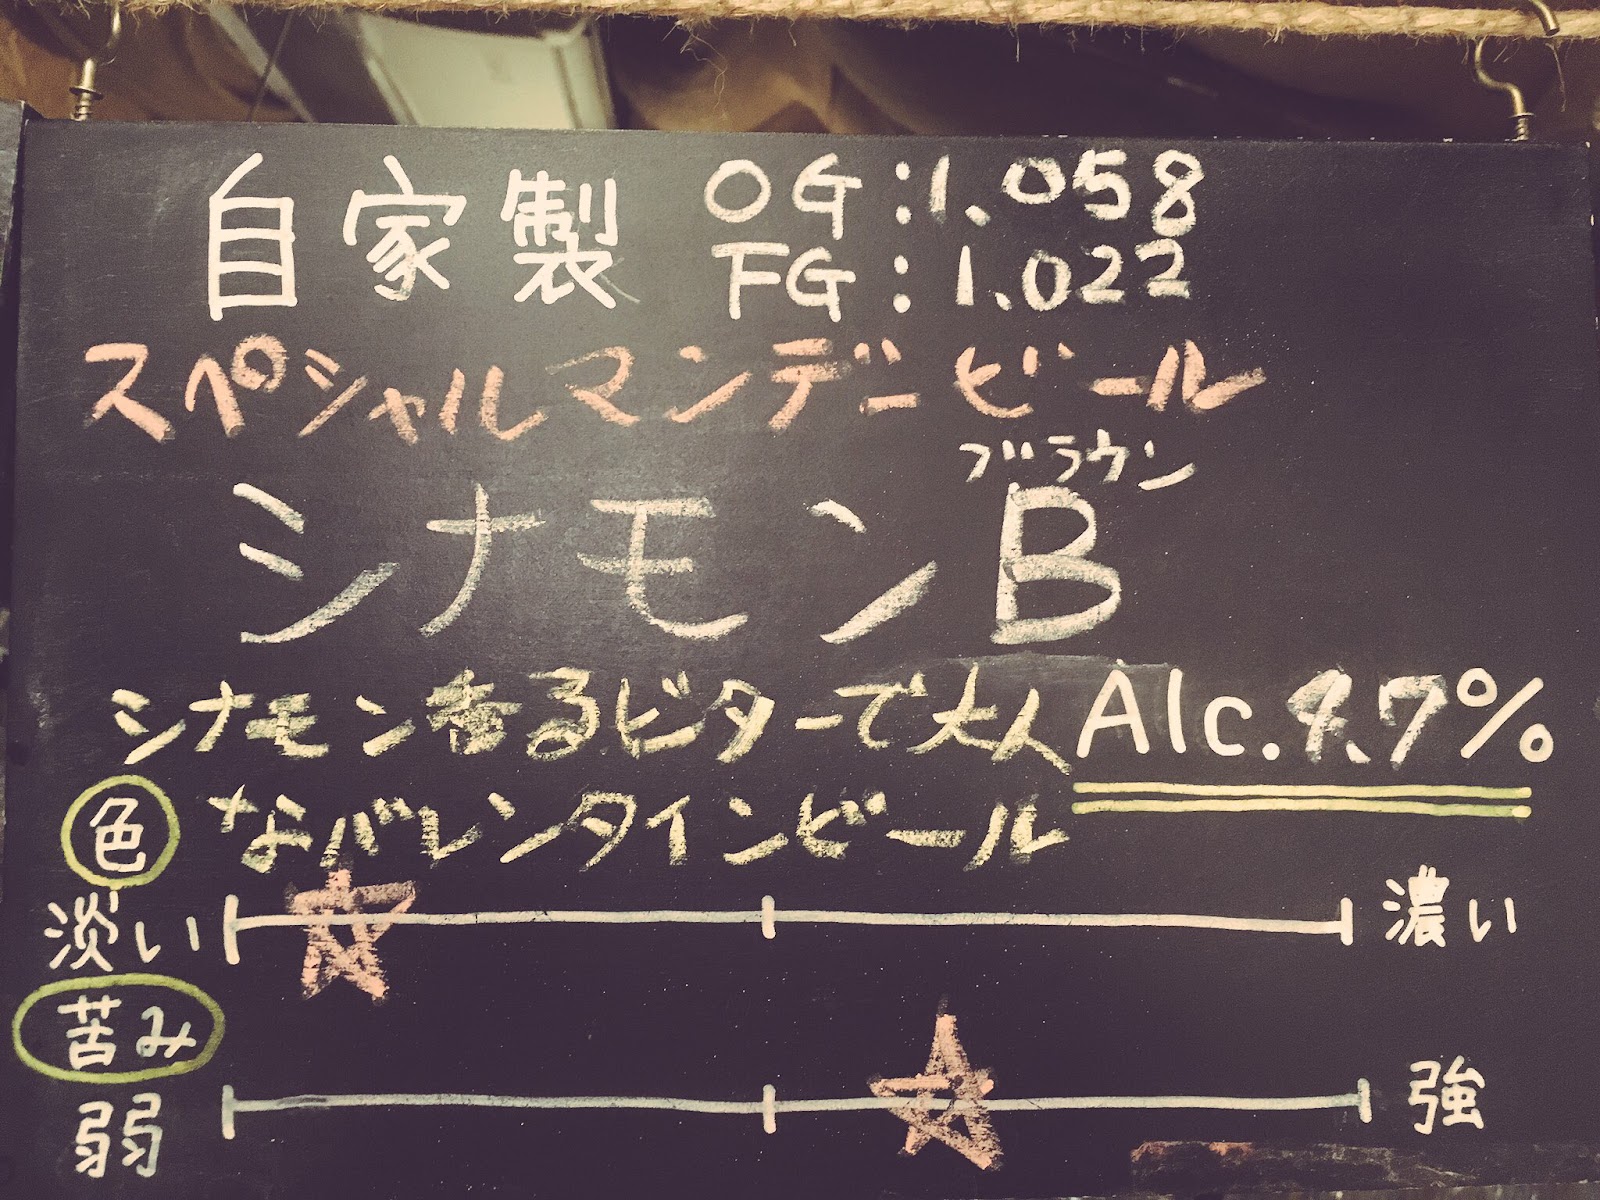 自家製
OG:1.058
FG:1.022
スペシャルマンデービール
ブラウン
シナモンB
シナモン香るビターで大人
なバレンタインビール
Alc.4.7%
色
淡い
濃い
苦み
弱
強